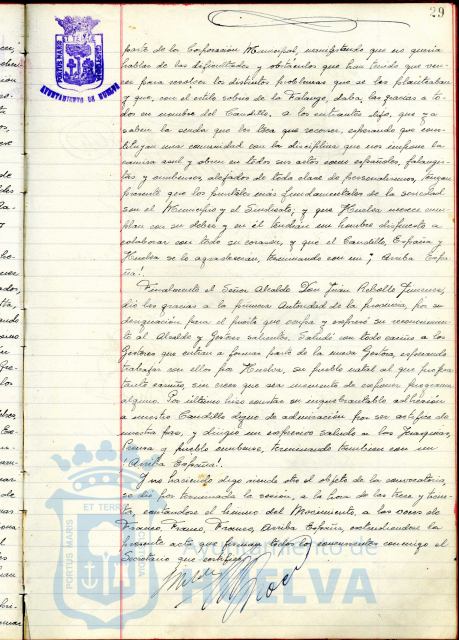 29
AYUNTAMIENTO DE HUELVA
parte de la Corporación Municipal, manifestando que no queria
hablar de las dificultades y obstáculos que han tenido que ven-
cer para resolver los distintos problemas que se les planteaban
y que, con el estilo sobrio de la Falange, daba las gracias a to-
dos en nombre del Caudillo. a los entrantes dijo, que ya
saben la senda que les toca que recorrer, esperando que cons-
tituyan una comunidad con la disciplina que nos impone la
camisa azul y obren en todos sus actos como españoles, falangis-
tas y onubenses, alejados de toda clase de personalismos, tengan
presente que los puntales más fundamentales de la sociedad
son el Municipio y el Sindicato, y que Huelva merece cum-
plan con su deber y en él tendran un hombre dispuesto a
colaborar con todo su corazon, y que el Caudillo, España y
Huelva se lo agradeceran, terminando con un ¡Arriba Espa-
ña!
Finalmente el Señor Alcalde Don Juan Rebollo Jimenez,
dió las gracias a la primera Autoridad de la provincia, por su
designación para el puesto que ocupa y expresó su reconocimien-
to al Alcalde y Gestores salientes. Saludó con todo cariño a los
Gestores que entran a formar parte de la nueva Gestora, esperando
trabajar con ellos por Huelva, su pueblo natal al que profesa
tanto cariño, sin creer que sea momento de exponer programa
alguno. Por último hizo constar su inquebrantable adhesión
a nuestro Caudillo digno de admiración por ser artífice de
nuestra paz, y dirigió un expresivo saludo a las Jerarquias,
Prensa y pueblo onubense, terminando tambien con un
¡Arriba España!.
Y no haciendo digo siendo otro el objeto de la convocatoria,
se dió por terminada la sesión, a la hora de las trece y trein-
ta, cantandose el himno del Movimiento, a las voces de
Franco, Franco, Franco, Arriba España, extendiendose la
presente acta que firman todos los concurrentes conmigo el
Secretario que certifico.
PORTUS MARIS
ET TERRA
Ayuntamiento de
HUELVA